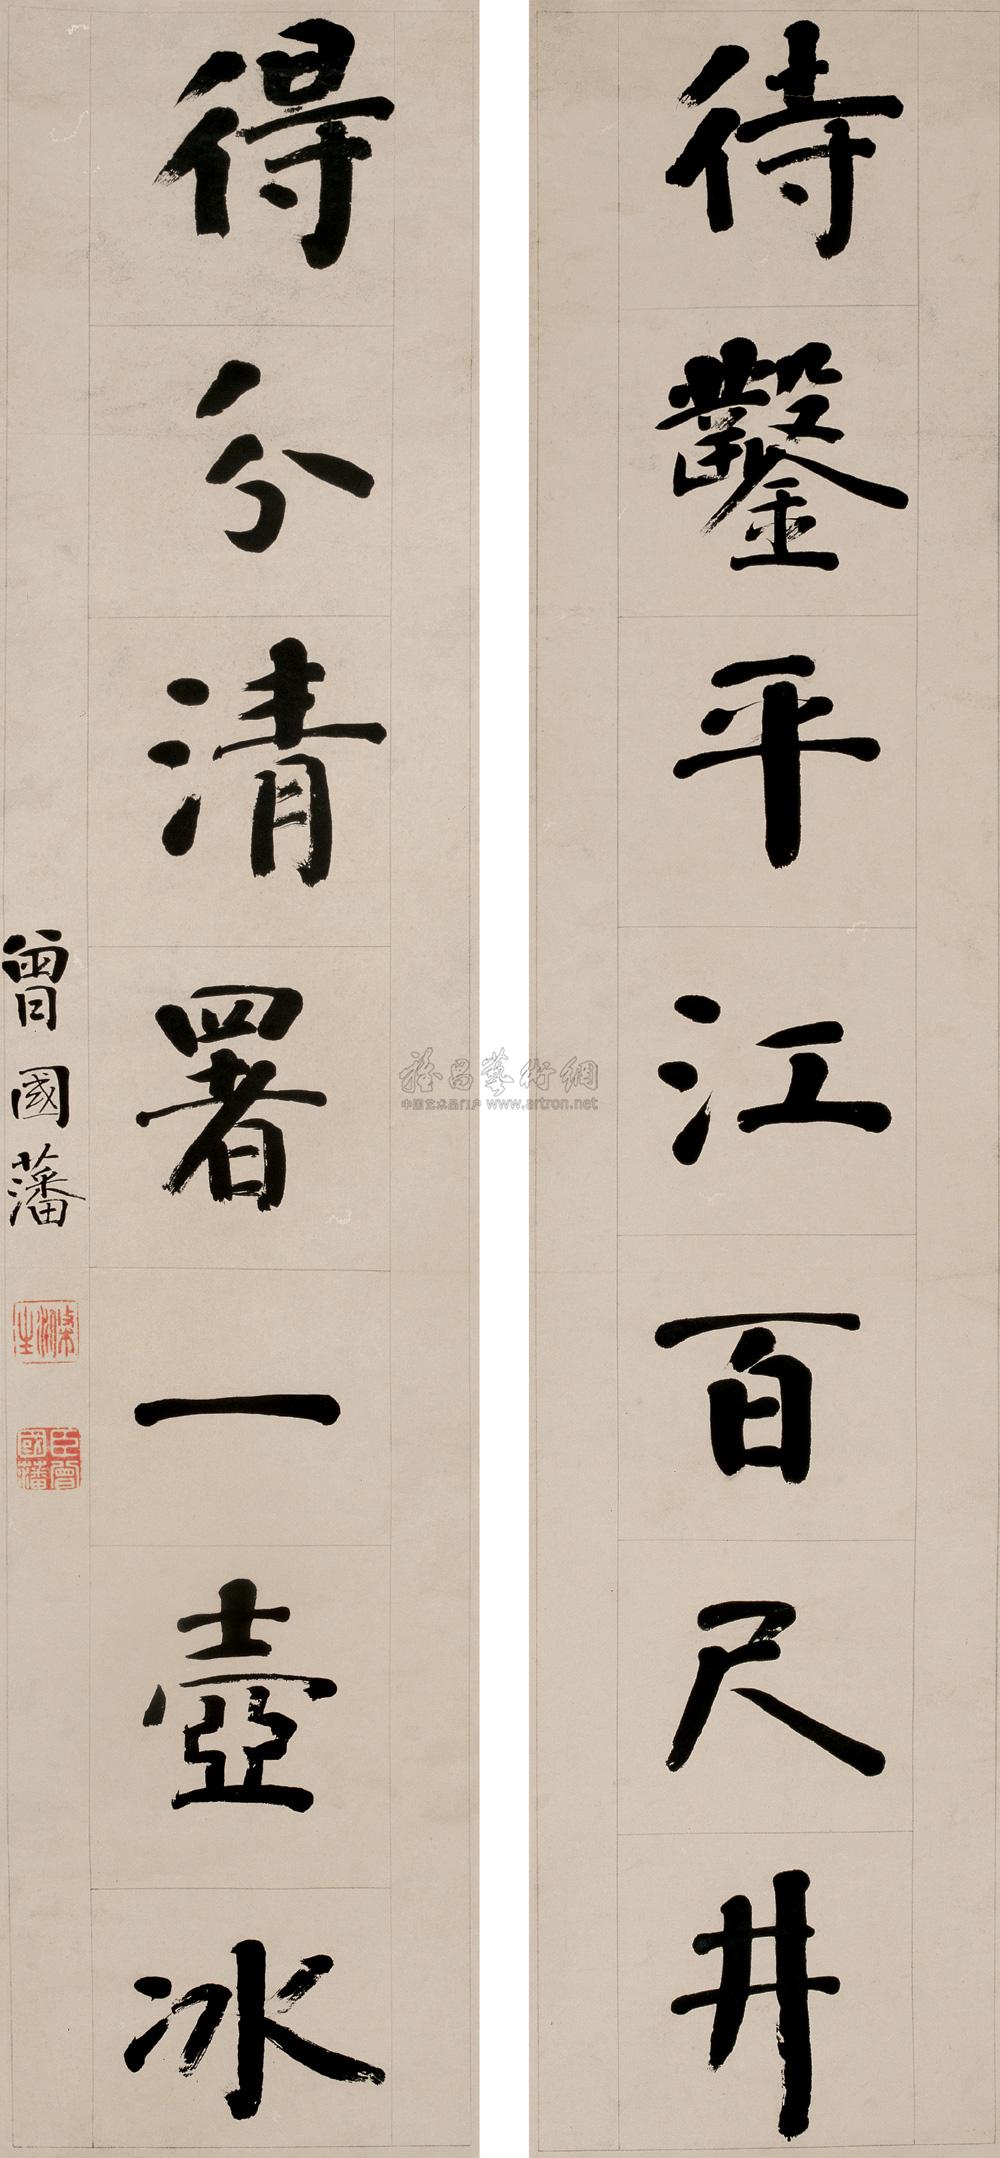 待鑿平江百尺井
得分清署一壺冰
曾國藩
滌生
臣曾國藩
雅昌藝術網
中国艺术品门户 www.artron.net